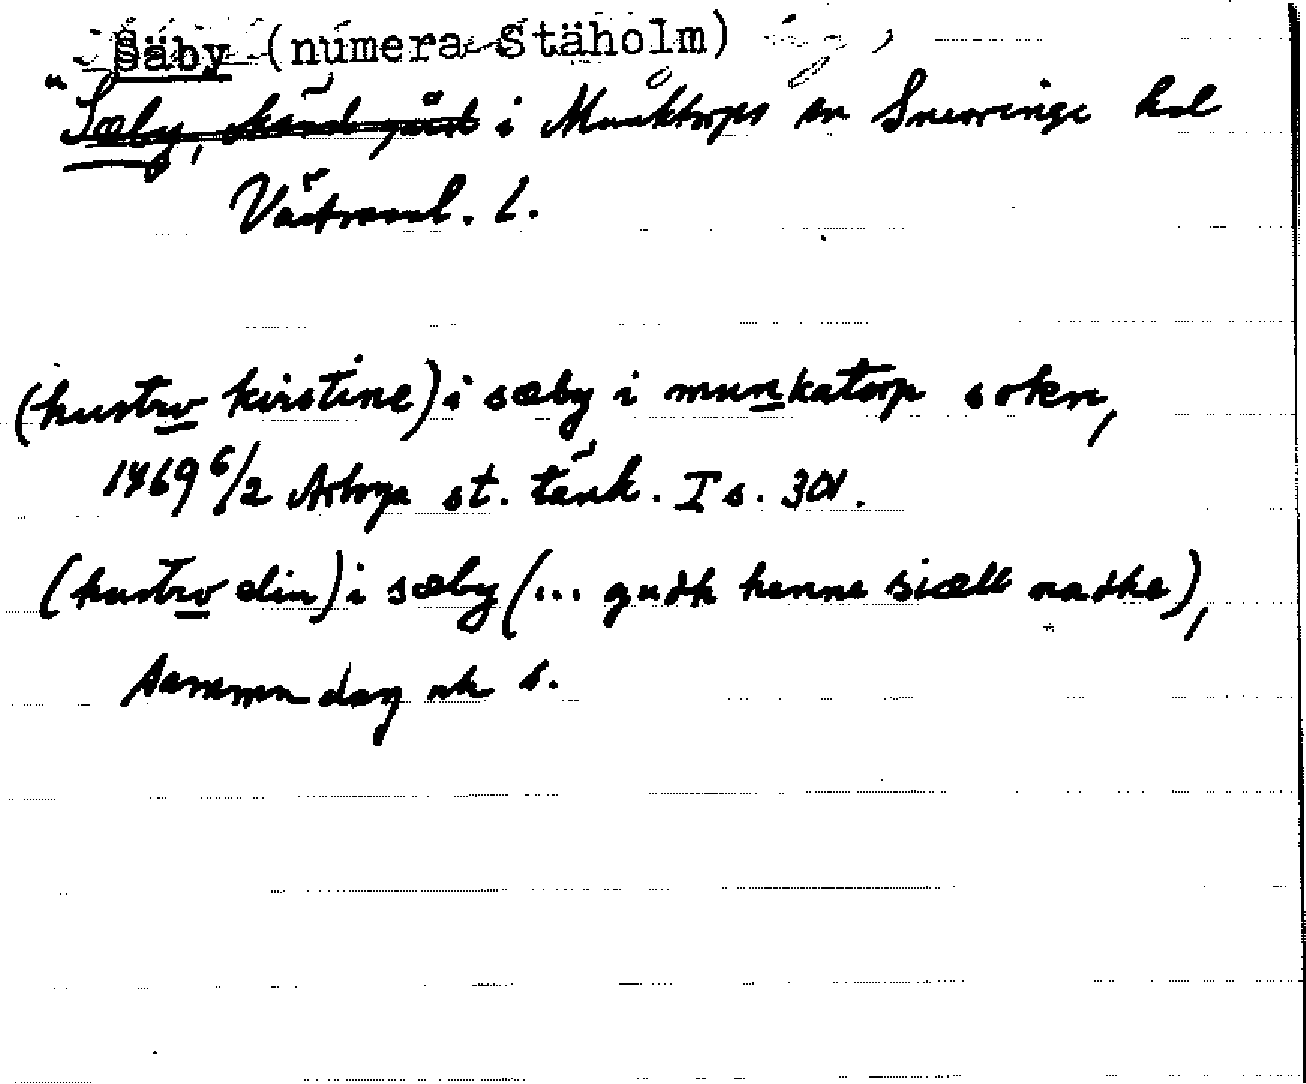 Säby (numera Stäholm)
Sæby, i Munktorps sn Snevringe hd
Västmanl. l.
(hustrv kirstine) i sæby i munkatorp sokn,
1469 6/2 Arboga st. tänk. I s. 301.
(hustrv elin) i sæby (... gudh henne siæll nadhe),
samma dag ok s.